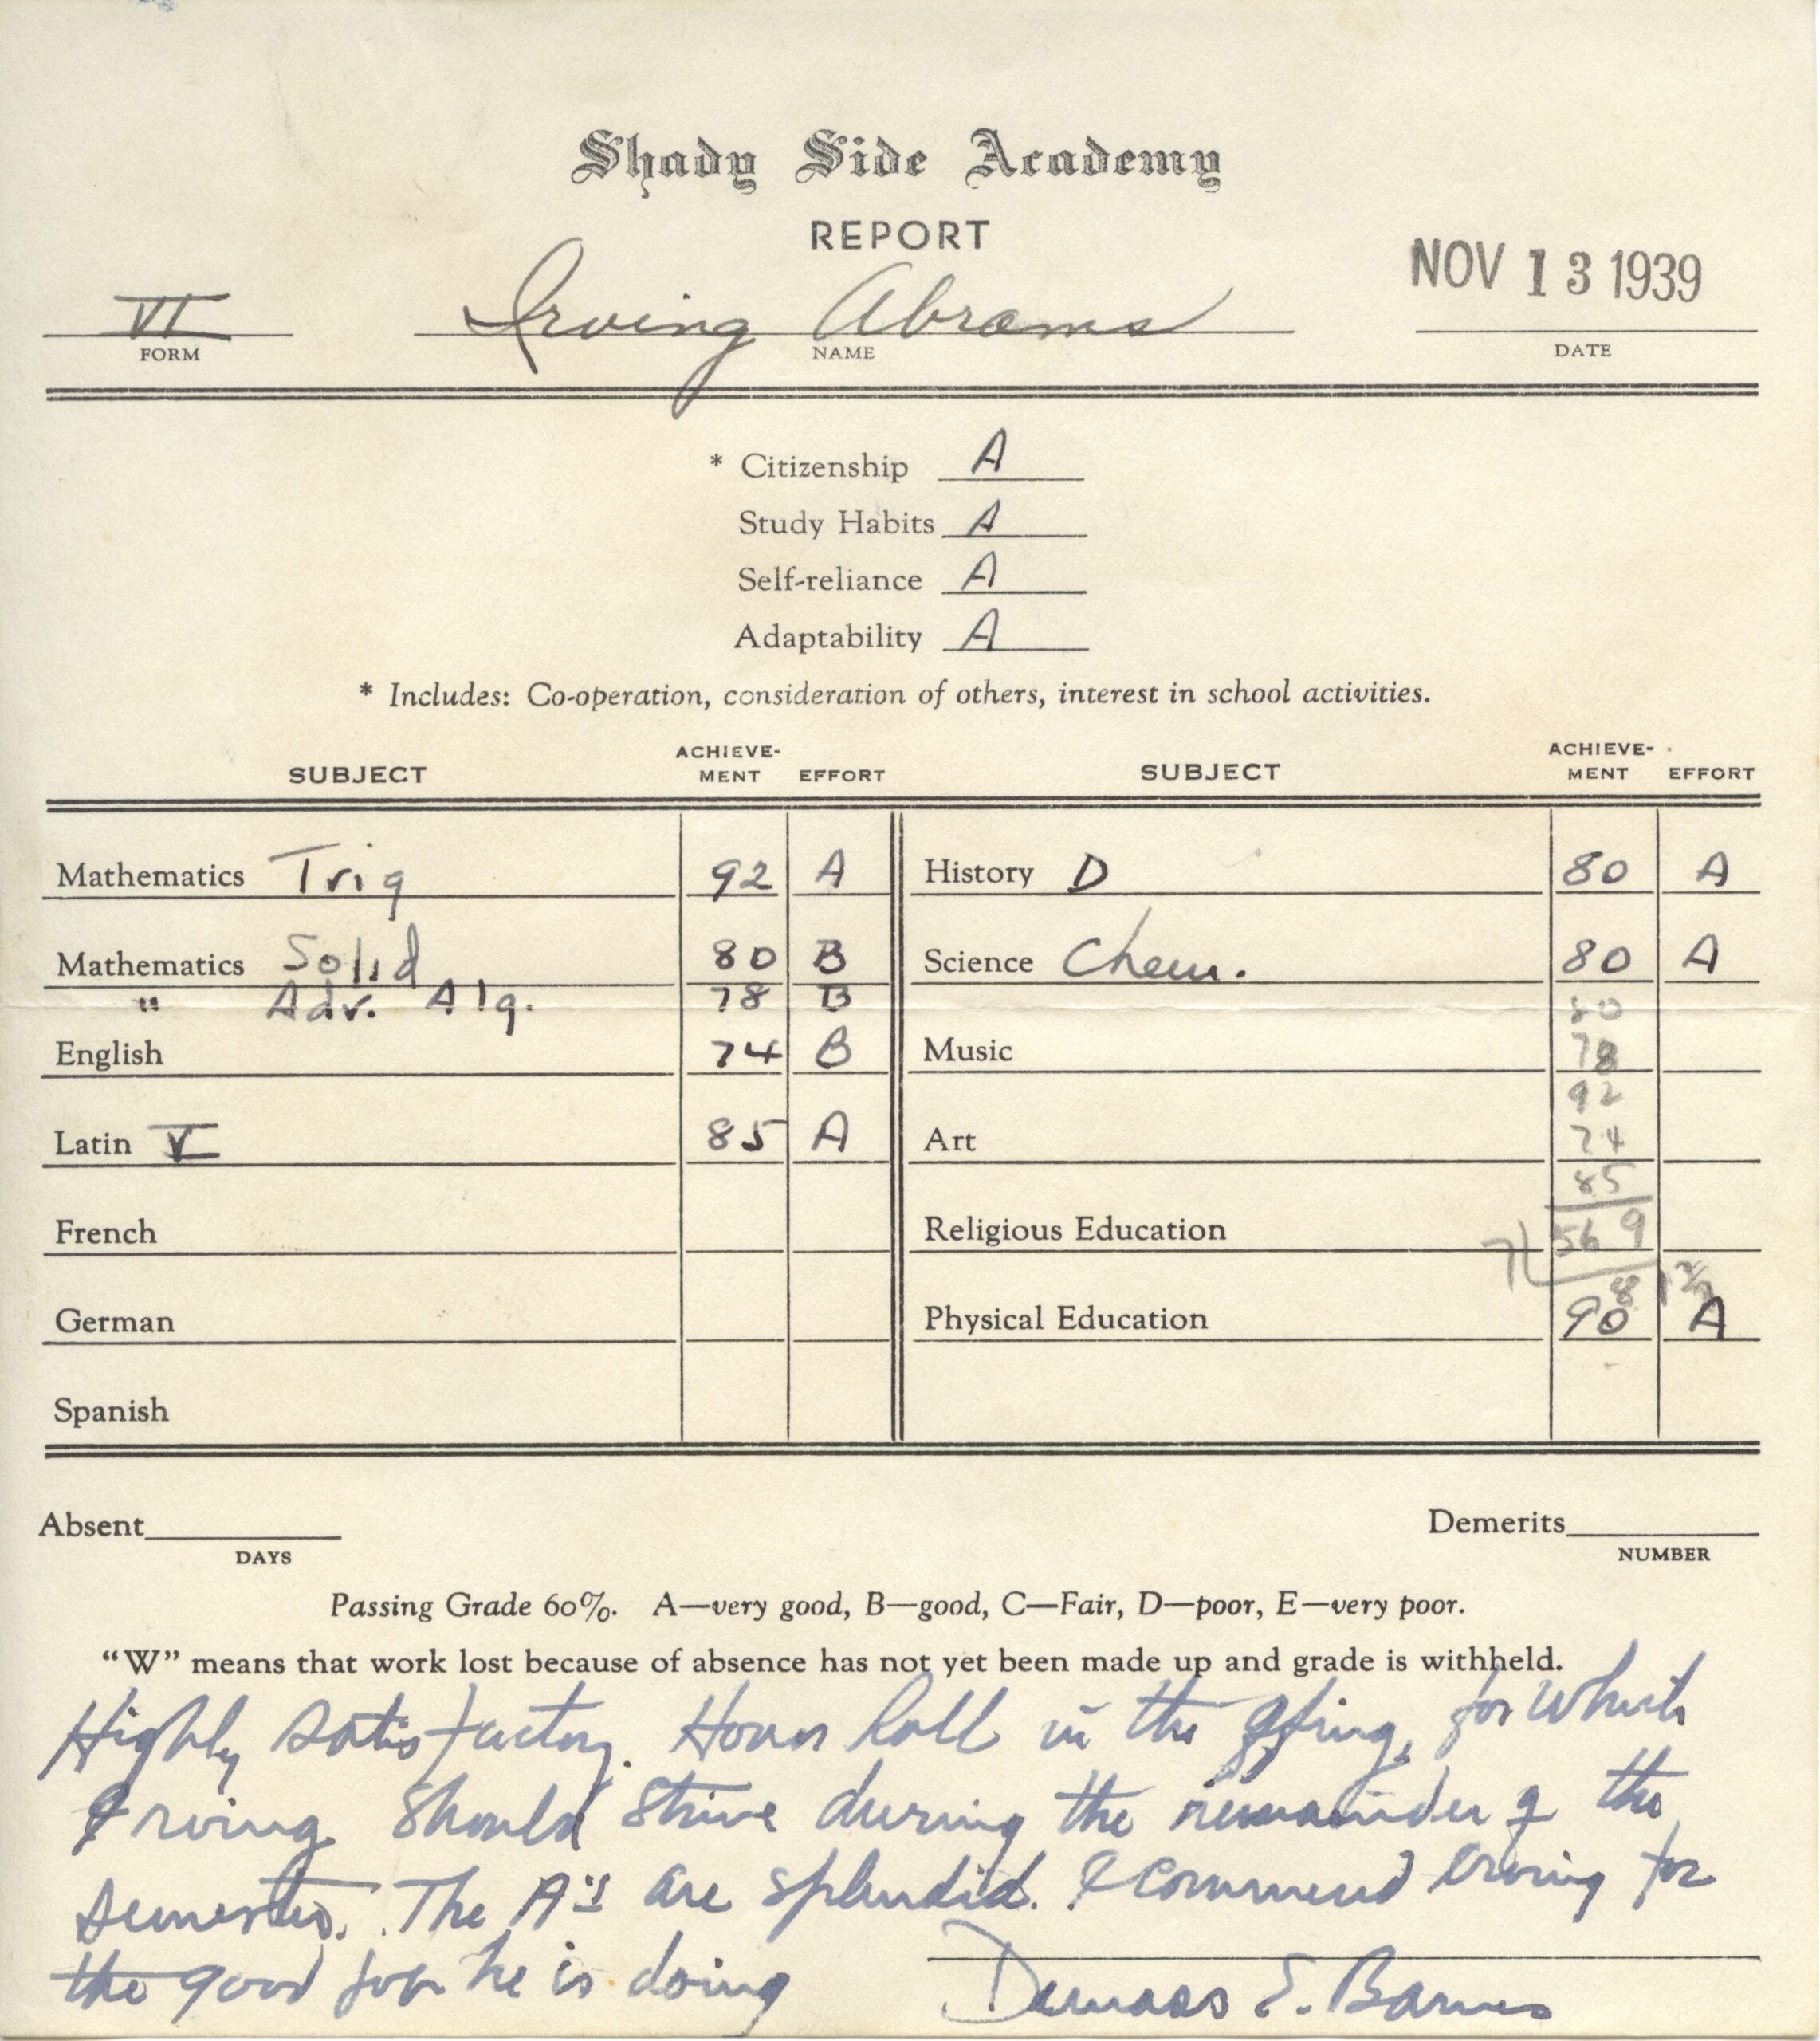 Shady Side Academy
REPORT
NOV 13 1939
VI Irving Abrams
FORM NAME DATE
* Citizenship A
Study Habits A
Self-reliance A
Adaptability A
* Includes: Co-operation, consideration of others, interest in school activities.
SUBJECT ACHIEVE-MENT EFFORT SUBJECT ACHIEVE-MENT EFFORT
Mathematics Trig 92 A History D 80 A
Mathematics Solid 80 B Science Chem. 80 A
" Adv. Alg. 78 B 80
English 74 B Music 78
92
Latin V 85 A Art 74
85
French Religious Education 7 569
8 1 2/7
German Physical Education 90 A
Spanish
Absent Demerits
DAYS NUMBER
Passing Grade 60%. A—very good, B—good, C—Fair, D—poor, E—very poor.
"W" means that work lost because of absence has not yet been made up and grade is withheld.
Highly satisfactory. Honor Roll in the offing, for which
Irving should strive during the remainder of the
semester. The A's are splendid. I commend Irving for
the good job he is doing
E. Barnes